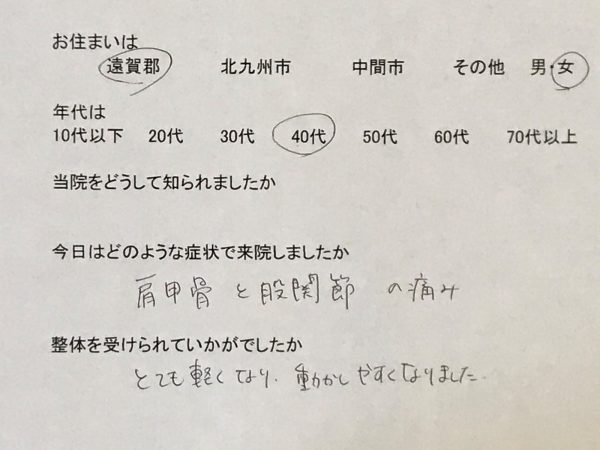 お住まいは
遠賀郡 北九州市 中間市 その他 男・女
年代は
10代以下 20代 30代 40代 50代 60代 70代以上
当院をどうして知られましたか
今日はどのような症状で来院しましたか
肩甲骨と股関節の痛み
整体を受けられていかがでしたか
とても軽くなり、動かしやすくなりました。